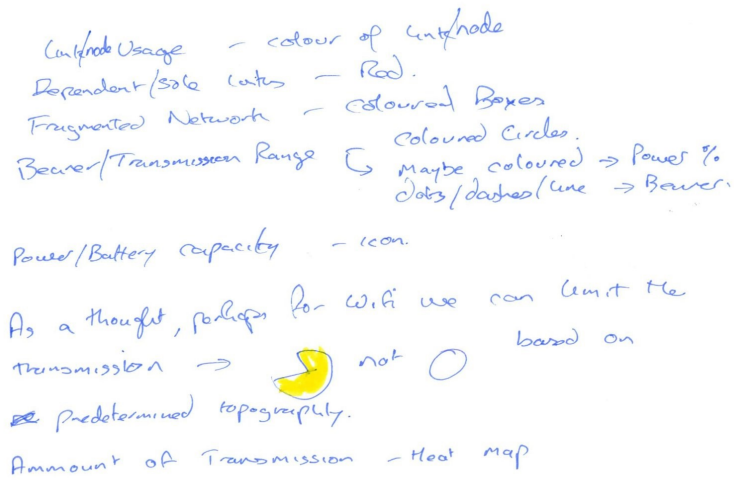 Link/node Usage - colour of link/node
Dependent/sole links - Red.
Fragmented Network - coloured Boxes
Bearer/Transmission Range coloured Circles.
↳ Maybe coloured → Power %
dots/dashes/line → Bearer.
Power/Battery capacity - icon.
As a thought, perhaps for Wifi we can limit the
transmission → not based on
predetermined topography.
Ammount of Transmission - Heat Map